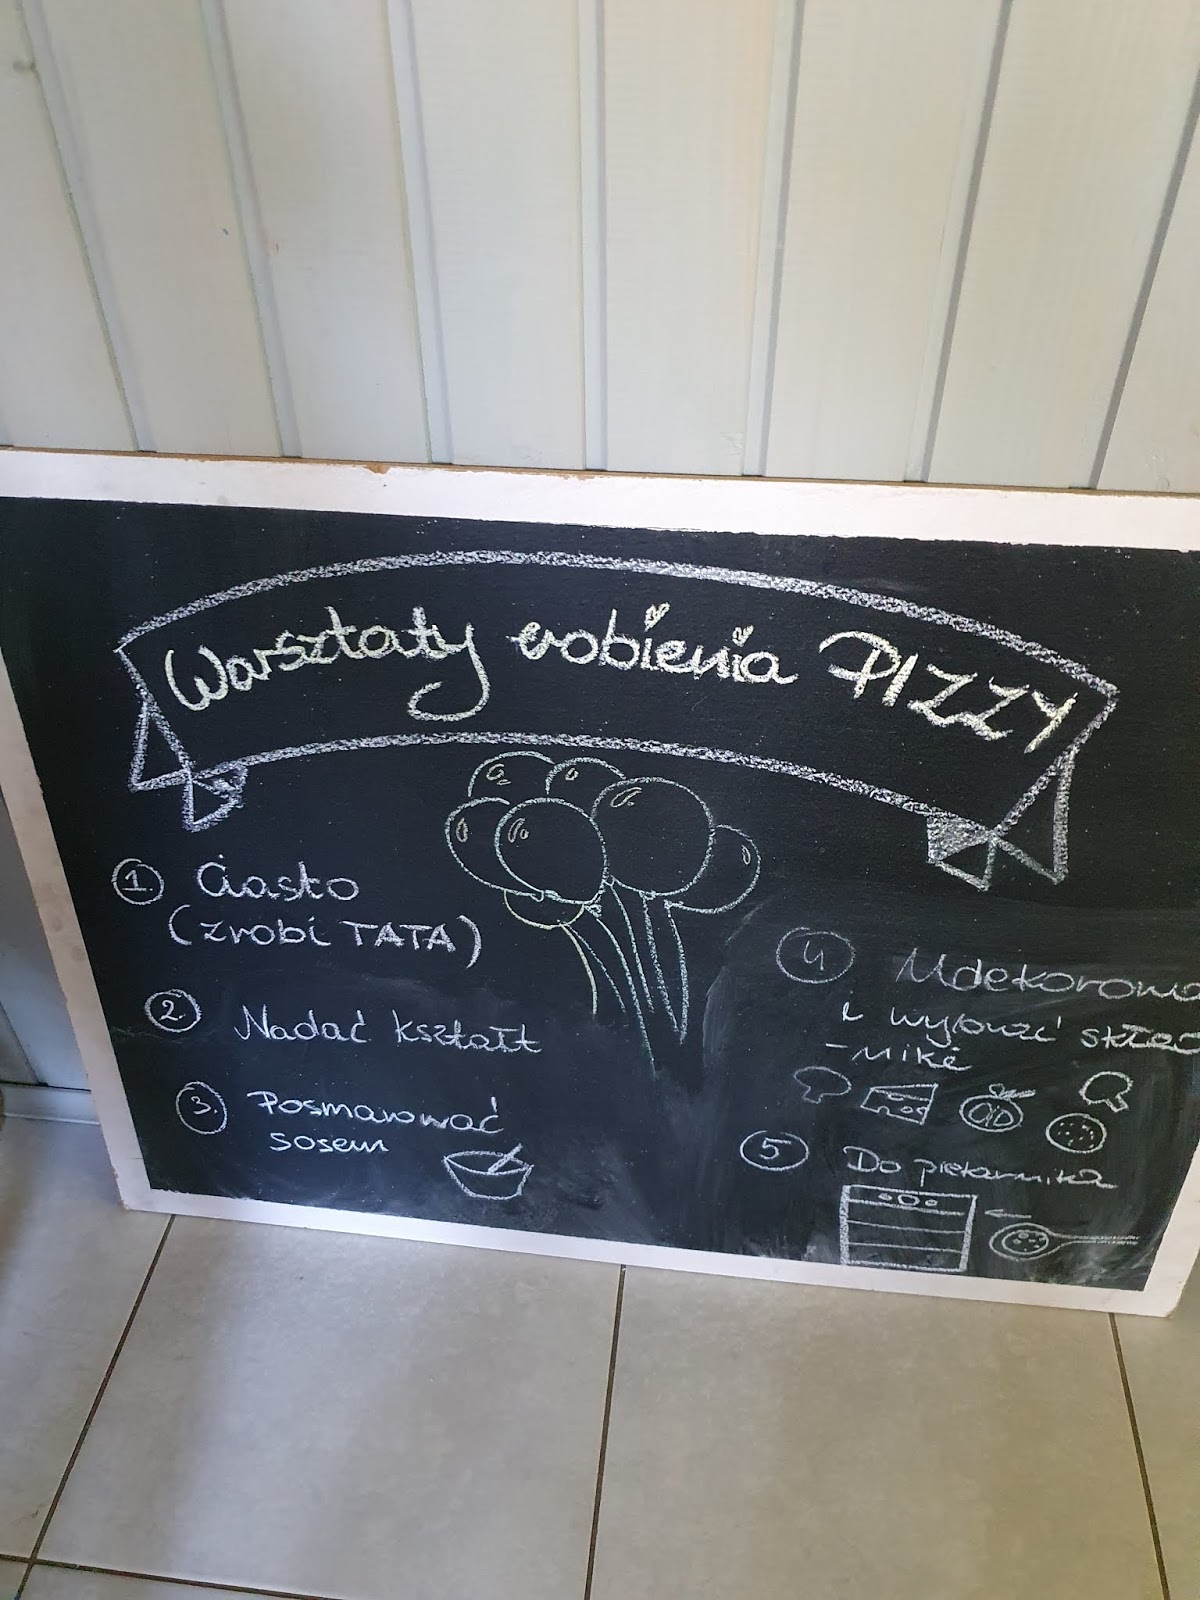 Warsztaty robienia PIZZY
1. Ciasto
(zrobi TATA)
2. Nadać kształt
3. Posmarować
sosem
4 Udekorowa
i wybrać skład
-niki
5 Do piekarnika